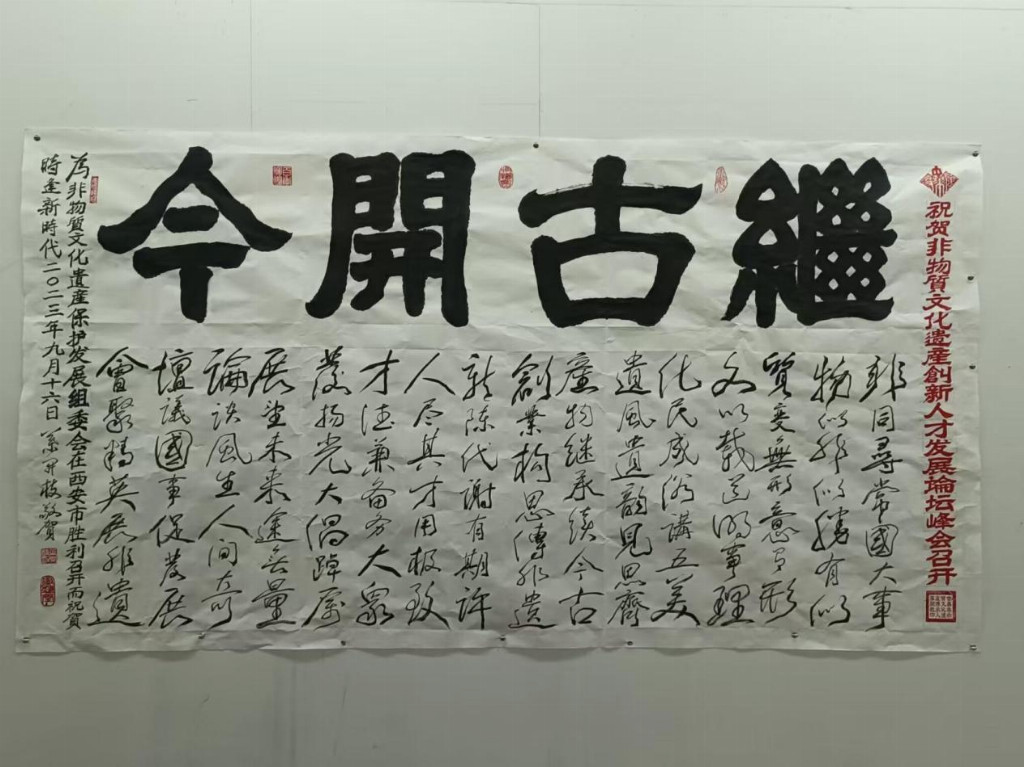 祝贺非物質文化遺產創新人才发展論坛峰会召开
繼古開今
非同尋常國大事
物似非似勝有似
質變無形意形
文以載道明事理
化民成俗講五美
遺風遺韻見思齊
產物继承續今古
創業构思傳非遗
新陈代謝有期许
人尽其才用极致
才德兼备务大眾
發扬光大倡踔厉
展望未来途無量
論談風生人间奇
壇議國事促發展
會聚精英展非遺
為非物質文化遺產保护发展組委会在西安市胜利召开而祝賀
時逢新時代二〇二三年九月十六日 敬賀